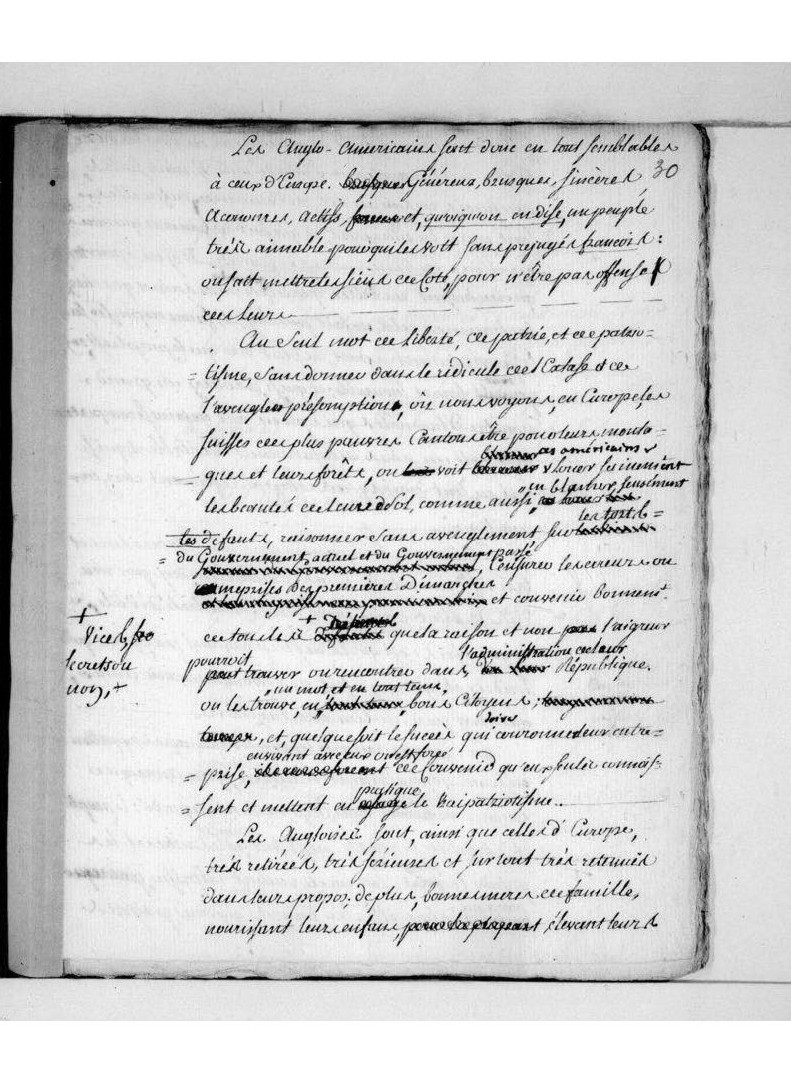 Les Anglo-Americains sont donc en tout semblables
30
à ceux d'Europe. Généreux, brusques, sincères
économes, actifs, et, quoiqu'on en dise, un peuple
très aimable pour qui les voit sans préjugés françois:
on sait mettre les siens de côté, pour n'être pas offensé
des leurs
Au seul mot de liberté, de patrie, et de patrio-
tisme, sans donner dans le ridicule de l'extase et de
l'aveugle présomption, où nous voyons, en Europe, les
suisses des plus pauvres Cantons être pour leurs monta-
ces américains
gnes et leurs forêts, on voit
les beautés de leur Sol, comme aussi
en blamer sensément
les torts
les défauts, raisonner sans aveuglement sur
du Gouvernement actuel et du Gouvernement passé
, Censurer les erreurs ou
méprises des premieres Démarches
et convenir bonnemt.
+
vices,
non, +
de tous les + que la raison et non l'aigreur
pourroit l'administration de leur
trouver ou rencontrer dans République.
un mot et en tout tems,
on les trouve, en bons Citoyens;
et, quelque soit le succès qui couronne leur entre-
en vivant avec eux on est forcé
prise, de convenir qu'eux seuls connois-
pratique
sent et mettent en le vrai patriotisme.
Les Angloises sont, ainsi que celles d'Europe,
très retirées, très sérieuses et sur tout très retenues
dans leurs propos; de plus, bonnes meres de famille,
nourissant leurs enfans, élevant leurs